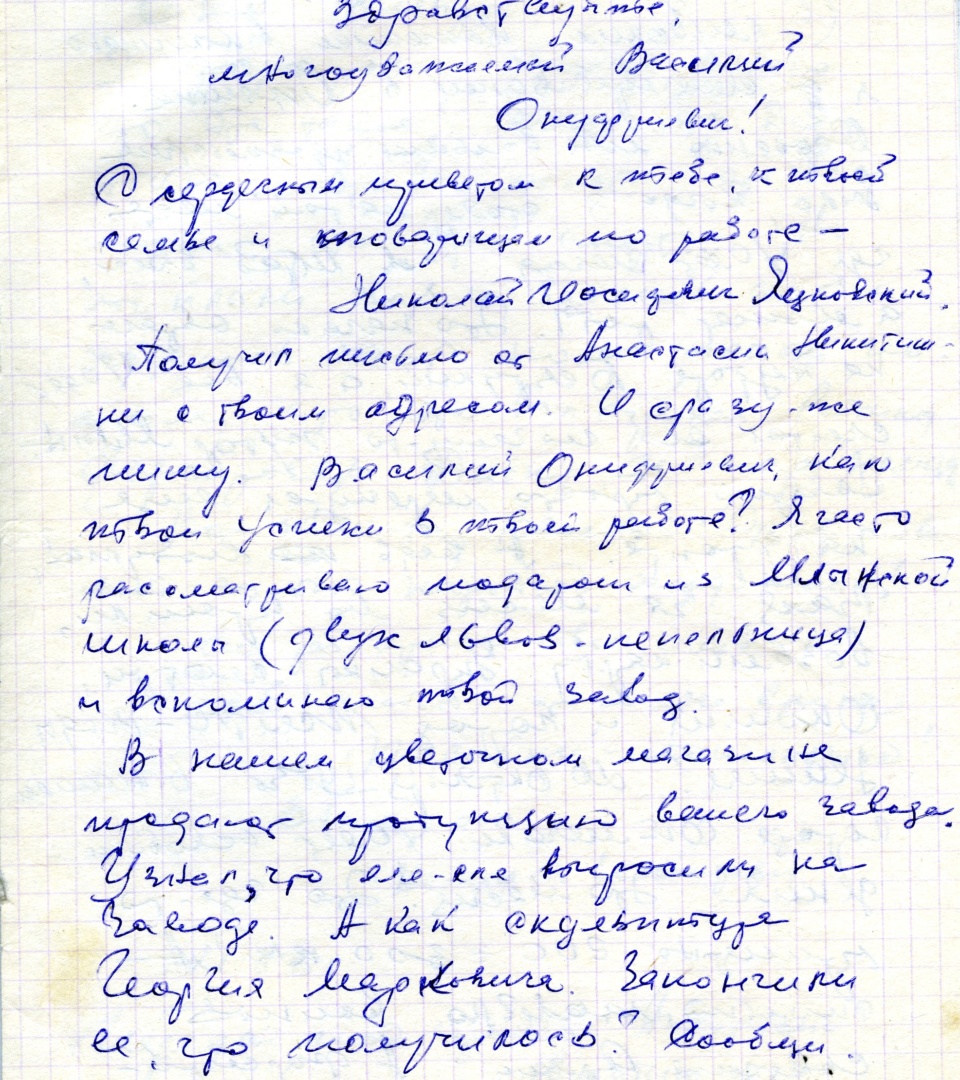 Здравствуйте,
многоуважаемый Василий
Онуфриевич!
С сердечным приветом к тебе, к твоей
семье и товарищам по работе —
Николай Иосифович Яцковский.
Получил письмо от Анастасии Никитич-
ны с твоим адресом. И сразу-же
пишу. Василий Онуфриевич, как
твои успехи в твоей работе? Я часто
рассматриваю подарок из Млынской
школы (двух львов - пепельница)
и вспоминаю твой завод.
В нашем цветочном магазине
продают продукцию вашего завода.
Узнал, что еле-еле выпросили на
заводе. А как скульптура
Георгия Марковича. Закончили
ее, что получилось? Сообщи.